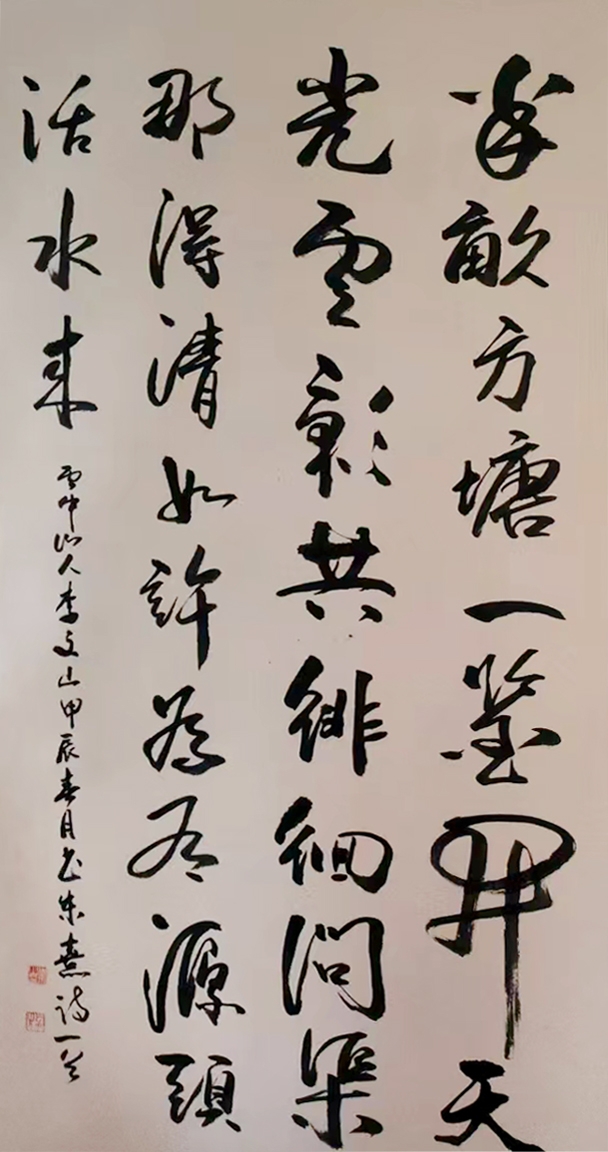 半畝方塘一鑒開天
光雲影共徘徊問渠
那得清如許為有源頭
活水来
雲中人李文山甲辰春月書朱熹詩一首